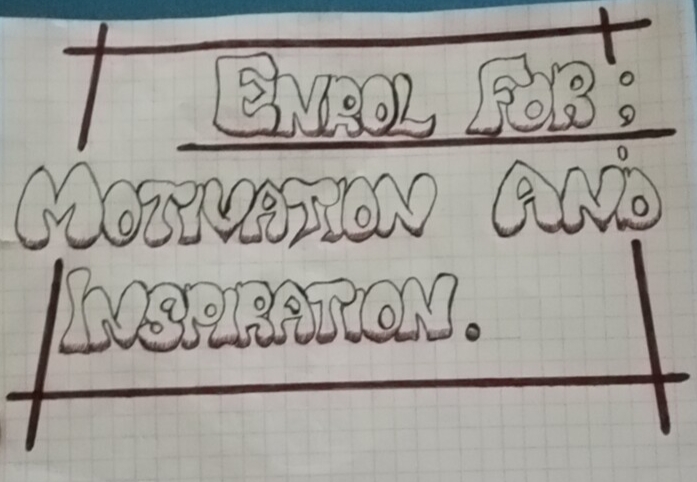 ENROL FOR:
MOTIVATION AND
INSPIRATION.